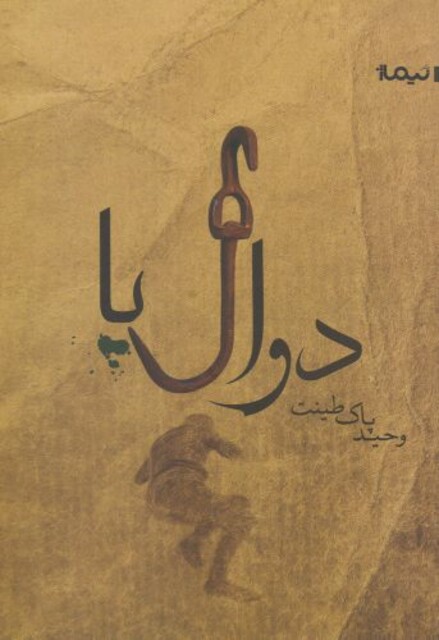 نیماژ
دوال پا
وحید پاک طینت